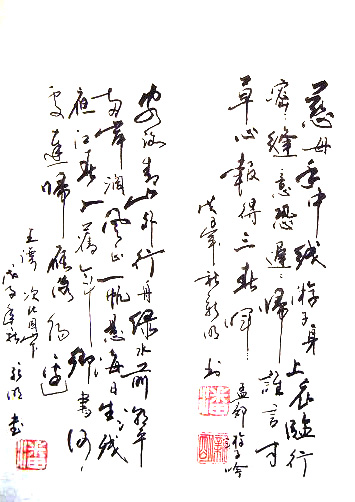 慈母手中线游子身上衣臨行
密密缝意恐遲遲歸誰言寸
草心報得三春晖
孟郊游子吟
戊子年秋新明书
客路青山外行舟绿水前潮平
两岸阔风正一帆悬海日生残
夜江春入舊年鄉書何
處達歸雁洛陽邊
王湾次北固山下
戊子年秋新明书